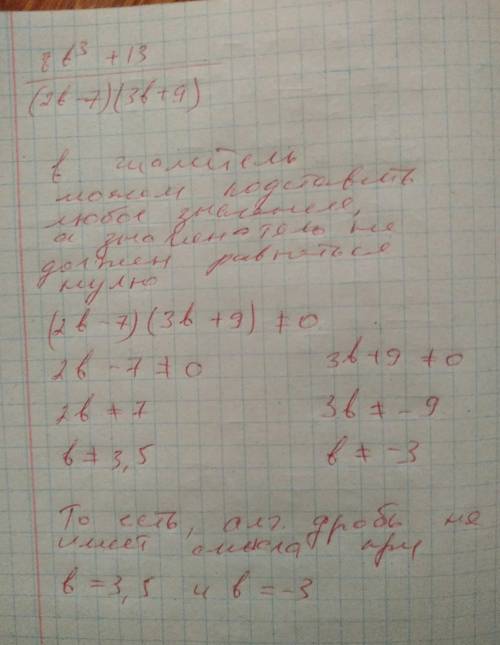 8b³ + 13
(2b - 7)(3b + 9)
в числитель
можем подставить
любое значение,
а знаменатель не
должен равняться
нулю
(2b - 7)(3b + 9) ≠ 0
2b - 7 ≠ 0 3b + 9 ≠ 0
2b ≠ 7 3b ≠ -9
b ≠ 3,5 b ≠ -3
То есть, алг. дробь не
имеет смысла при
b = 3,5 и b = -3